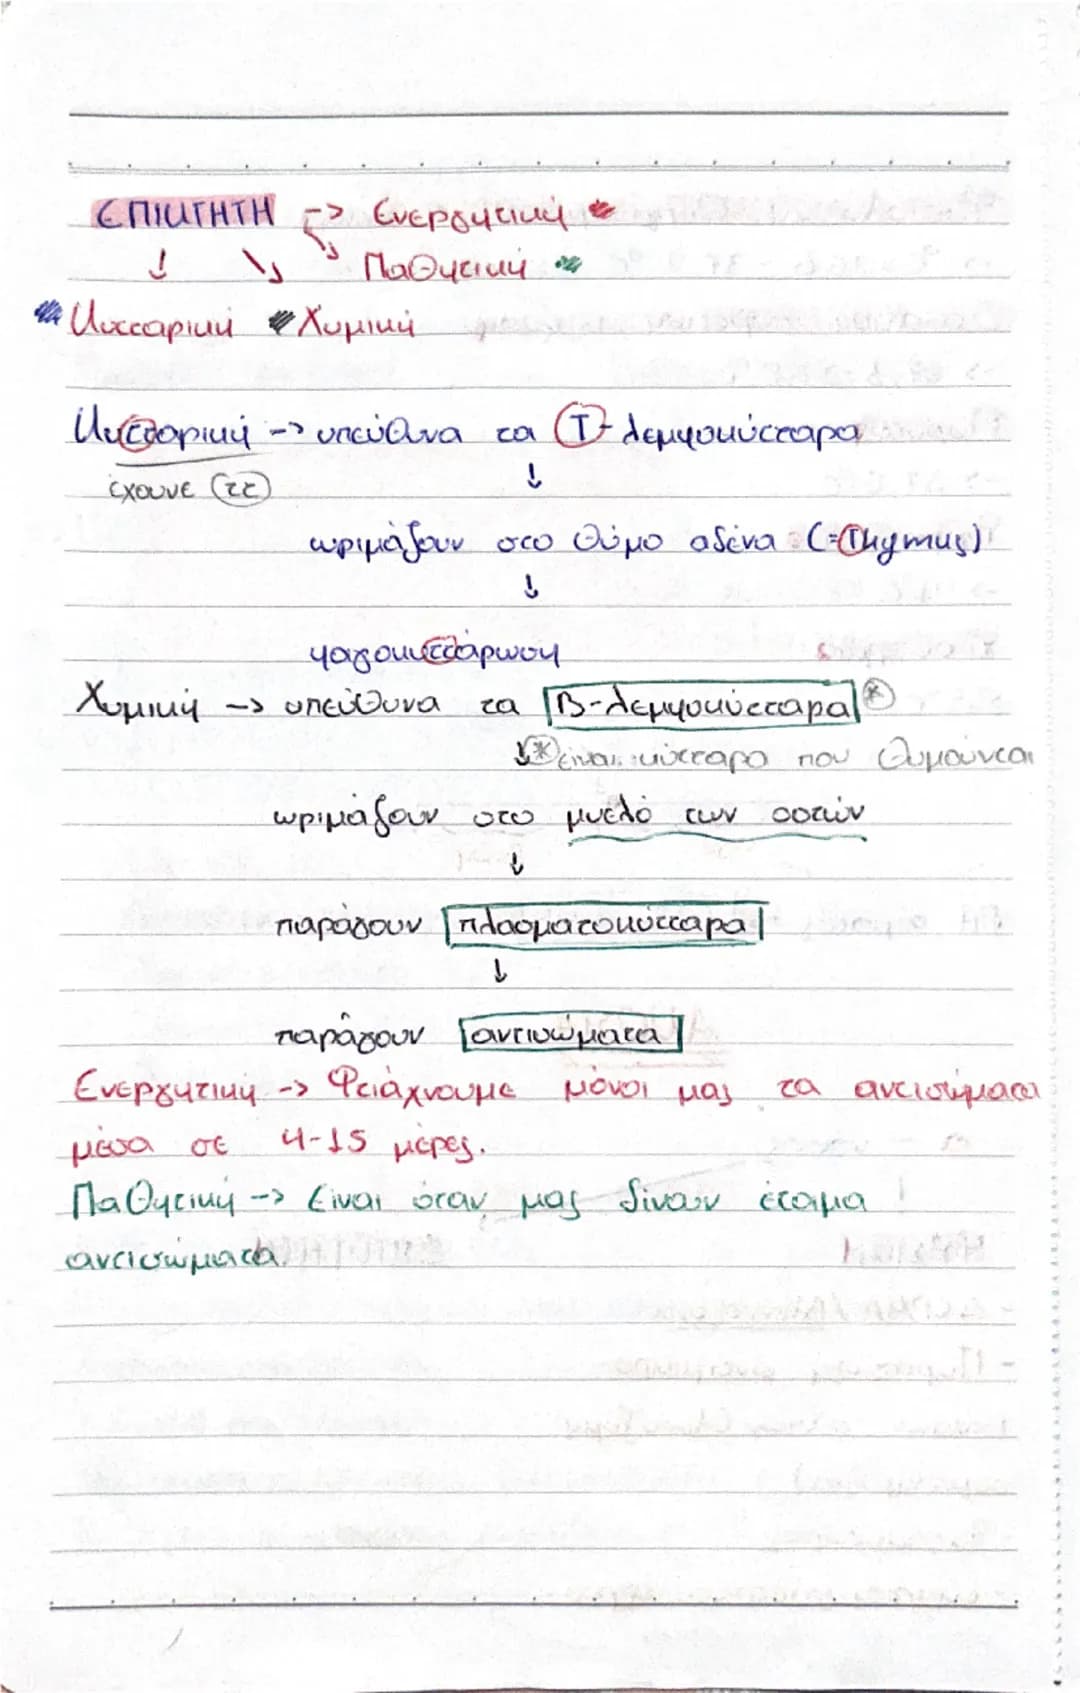 ΕΠΙΚΤΗΤΗ -> Ενεργητική
↓ ↘ ↘ Παθητική
Κυτταρική Χυμική
Κυτταρική -> υπεύθυνα τα Τ-λεμφοκύτταρα
έχουνε ττ ↓
ωριμάζουν στο θύμο αδένα (=Thymus)
↓
φαγοκυττάρωση
Χυμική -> υπεύθυνα τα Β-λεμφοκύτταρα *
↓ * είναι κύτταρα που θυμούνται
ωριμάζουν στο μυελό των οστών
↓
παράγουν πλασματοκύτταρα
↓
παράγουν αντισώματα
Ενεργητική -> Φτιάχνουμε μόνοι μας τα αντισώματα
μέσα σε 4-15 μέρες.
Παθητική -> Είναι όταν μας δίνουν έτοιμα
αντισώματα.